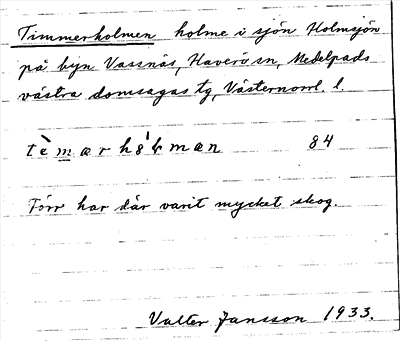 Timmerholmen holme i sjön Holmsjön
på byn Vassnäs, Haverö sn, Medelpads
västra domsagas tg, Västernorrl. l.
84
Förr har där varit mycket skog.
Valter Jansson 1933.